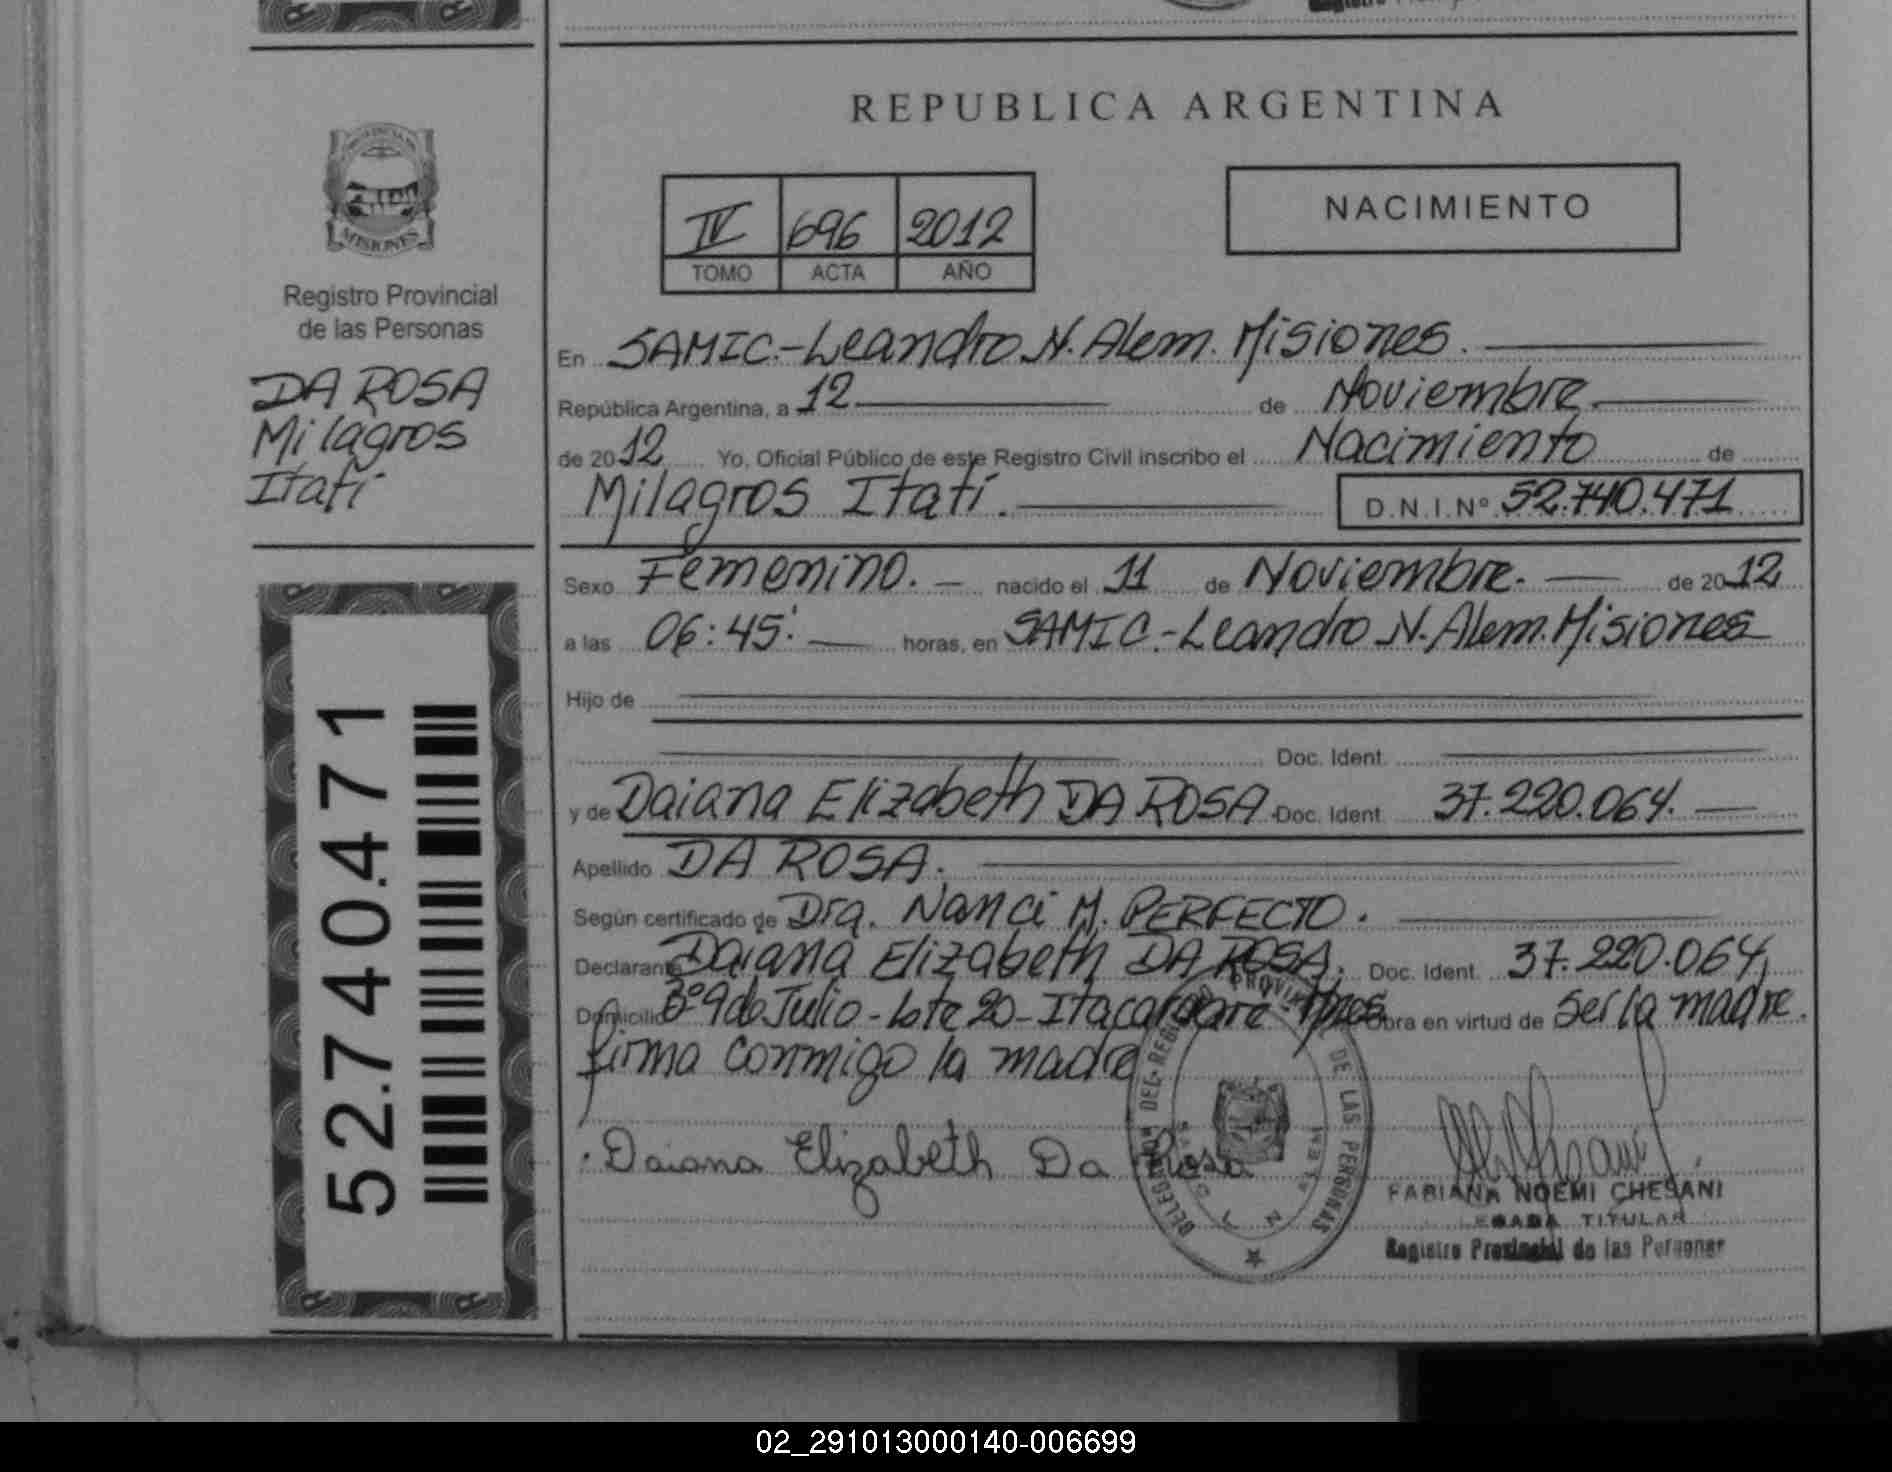 REPUBLICA ARGENTINA
NACIMIENTO
IV 696 2012
TOMO ACTA AÑO
MISIONES
Registro Provincial
de las Personas
DA ROSA
Milagros
Itatí
52.740.471
En SAMIC.-Leandro N. Alem. Misiones.
República Argentina, a 12 de Noviembre.
de 2012 Yo, Oficial Público de este Registro Civil inscribo el Nacimiento de
Milagros Itatí. D.N.I.Nº 52.740.471
Sexo Femenino. nacido el 11 de Noviembre. de 2012
a las 06:45' horas, en SAMIC.-Leandro N. Alem. Misiones
Hijo de
Doc. Ident.
y de Daiana Elizabeth DA ROSA. Doc. Ident. 37.220.064.
Apellido DA ROSA.
Según certificado de Dra. Nanci M. PERFECTO.
Declarante Daiana Elizabeth DA ROSA. Doc. Ident. 37.220.064,
Domicilio Bº 9 de Julio - Lote 20 - Itacaruare - Mnes Obra en virtud de Ser la madre.
firma conmigo la madre
Daiana Elizabeth Da Rosa
DEL REGISTRO PROVINCIAL DE LAS PERSONAS
FABIANA NOEMI CHESANI
TITULAR
Registro Provincial de las Personas
02_291013000140-006699